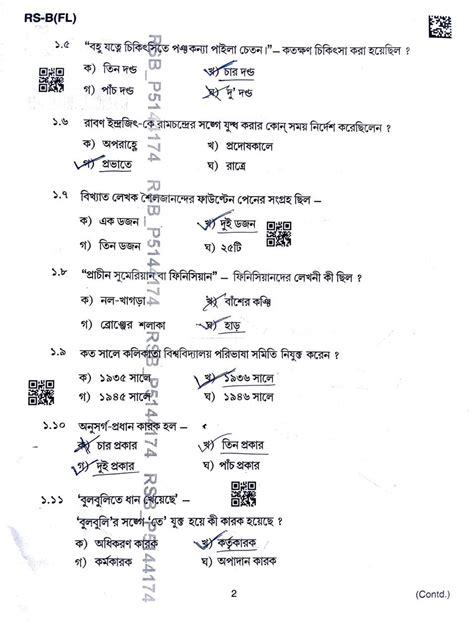 RS-B(FL)
১.৫ "বহু যত্নে চিকিৎসিতে পঞ্চকন্যা পাইলা চেতন।" – কতক্ষণ চিকিৎসা করা হয়েছিল ?
ক) তিন দণ্ড খ) চার দণ্ড
গ) পাঁচ দণ্ড ঘ) দু' দণ্ড
১.৬ রাবণ ইন্দ্রজিৎ-কে রামচন্দ্রের সঙ্গে যুদ্ধ করার কোন্ সময় নির্দেশ করেছিলেন ?
ক) অপরাহ্ণে খ) প্রদোষকালে
গ) প্রভাতে ঘ) রাত্রে
১.৭ বিখ্যাত লেখক শৈলজানন্দের ফাউন্টেন পেনের সংগ্রহ ছিল –
ক) এক ডজন খ) দুই ডজন
গ) তিন ডজন ঘ) ২৫টি
১.৮ "প্রাচীন সুমেরিয়ান বা ফিনিসিয়ান" – ফিনিসিয়ানদের লেখনী কী ছিল ?
ক) নল-খাগড়া খ) বাঁশের কঞ্চি
গ) ব্রোঞ্জের শলাকা ঘ) হাড়
১.৯ কত সালে কলিকাতা বিশ্ববিদ্যালয় পরিভাষা সমিতি নিযুক্ত করেন ?
ক) ১৯৩৫ সালে খ) ১৯৩৬ সালে
গ) ১৯৪৫ সালে ঘ) ১৯৪৬ সালে
১.১০ অনুসর্গ-প্রধান কারক হল –
ক) চার প্রকার খ) তিন প্রকার
গ) দুই প্রকার ঘ) পাঁচ প্রকার
১.১১ 'বুলবুলিতে ধান খেয়েছে' –
'বুলবুলি'র সঙ্গে 'তে' যুক্ত হয়ে কী কারক হয়েছে ?
ক) অধিকরণ কারক খ) কর্তৃকারক
গ) কর্মকারক ঘ) অপাদান কারক
RSB_P5144174 RSB_P5144174 RSB_P5144174 RSB_P5144174
2
(Contd.)